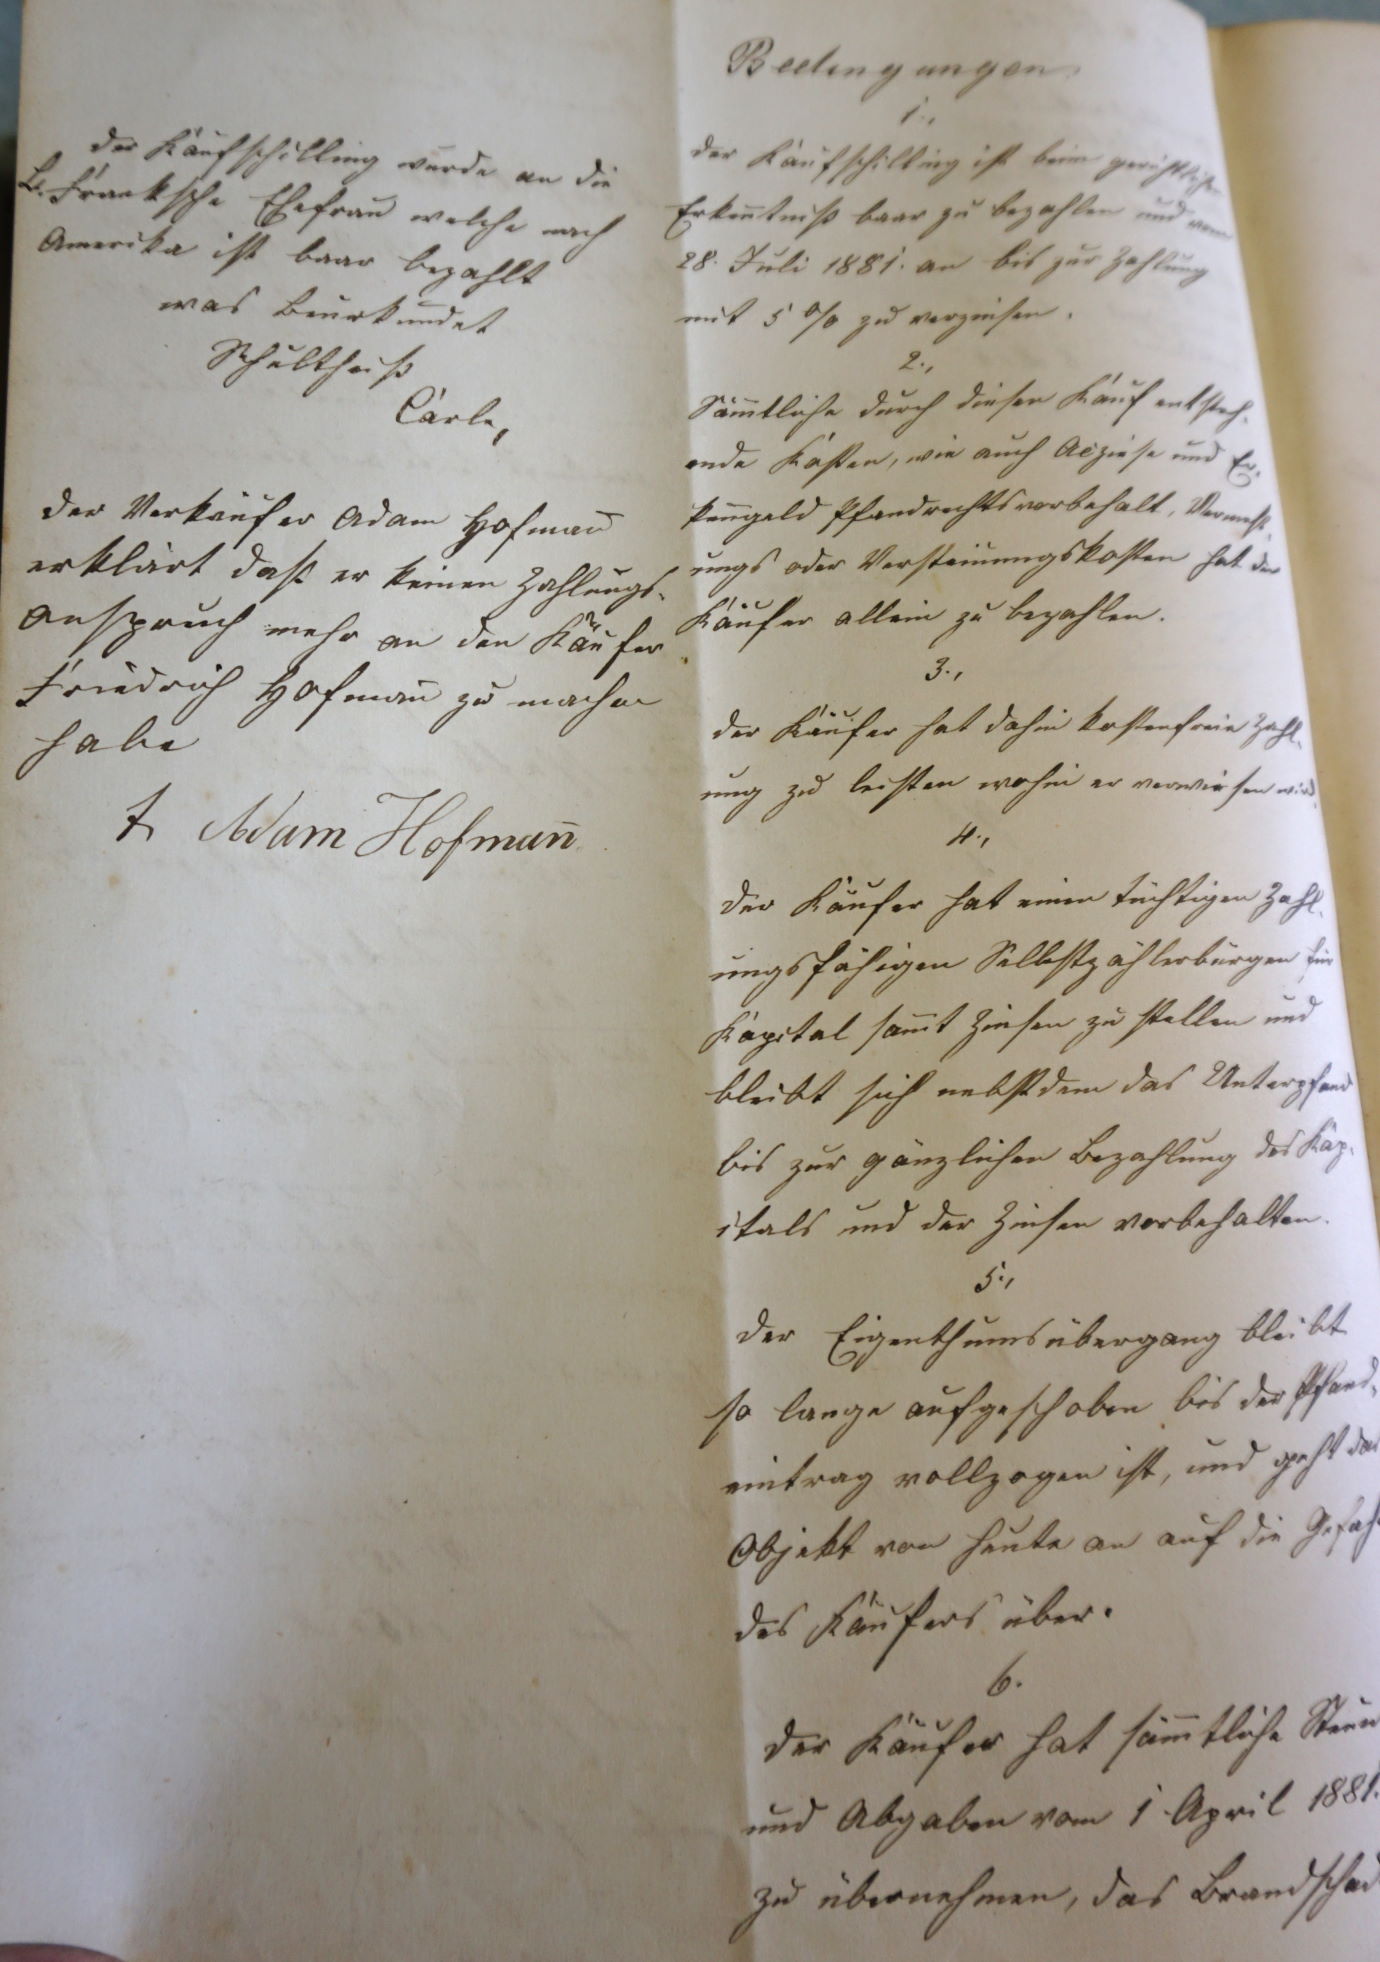 Der Kaufschilling wurde an die
L. Franksche Ehefrau welche nach
Amerika ist baar bezahlt
was Beurkundet
Schultheiß
Carle,
Der Verkäufer Adam Hofmañ
erklärt daß er keinen Zahlungs-
anspruch mehr an den Käufer
Friedrich Hofmañ zu machen
habe
t. Adam Hofmañ
Bedingungen
1.,
Der Kaufschilling ist beim gerichtlichen
Erkenntniß baar zu bezahlen und vom
28. Juli 1881. an bis zur Zahlung
mit 5 % zu verzinsen.
2.,
Säm̃tliche durch diesen Kauf entsteh-
ende Kosten, wie auch Accise und Er-
kenngeld Pfandrechtsvorbehalt, Vermess-
ungs oder Versteinungskosten hat der
Käufer allein zu bezahlen.
3.,
Der Käufer hat dahin kostenfreie Zahl-
ung zu leisten wohin er verwiesen wird.
4.,
Der Käufer hat einen tüchtigen Zahl-
ungsfähigen Selbstzahlerbürgen für
Kapital sam̃t Zinsen zu stellen und
bleibt sich nebstdem das Unterpfand
bis zur gänzlichen Bezahlung des Kap-
itals und der Zinsen vorbehalten.
5.,
Der Eigenthumsübergang bleibt
so lange aufgeschoben bis der Pfand-
eintrag vollzogen ist, und geht das
Objekt von heute an auf die Gefahr
des Käufers über.
6.
Der Käufer hat säm̃tliche Steuer
und Abgaben vom 1 April 1881.
zu übernehmen, das Brandschad